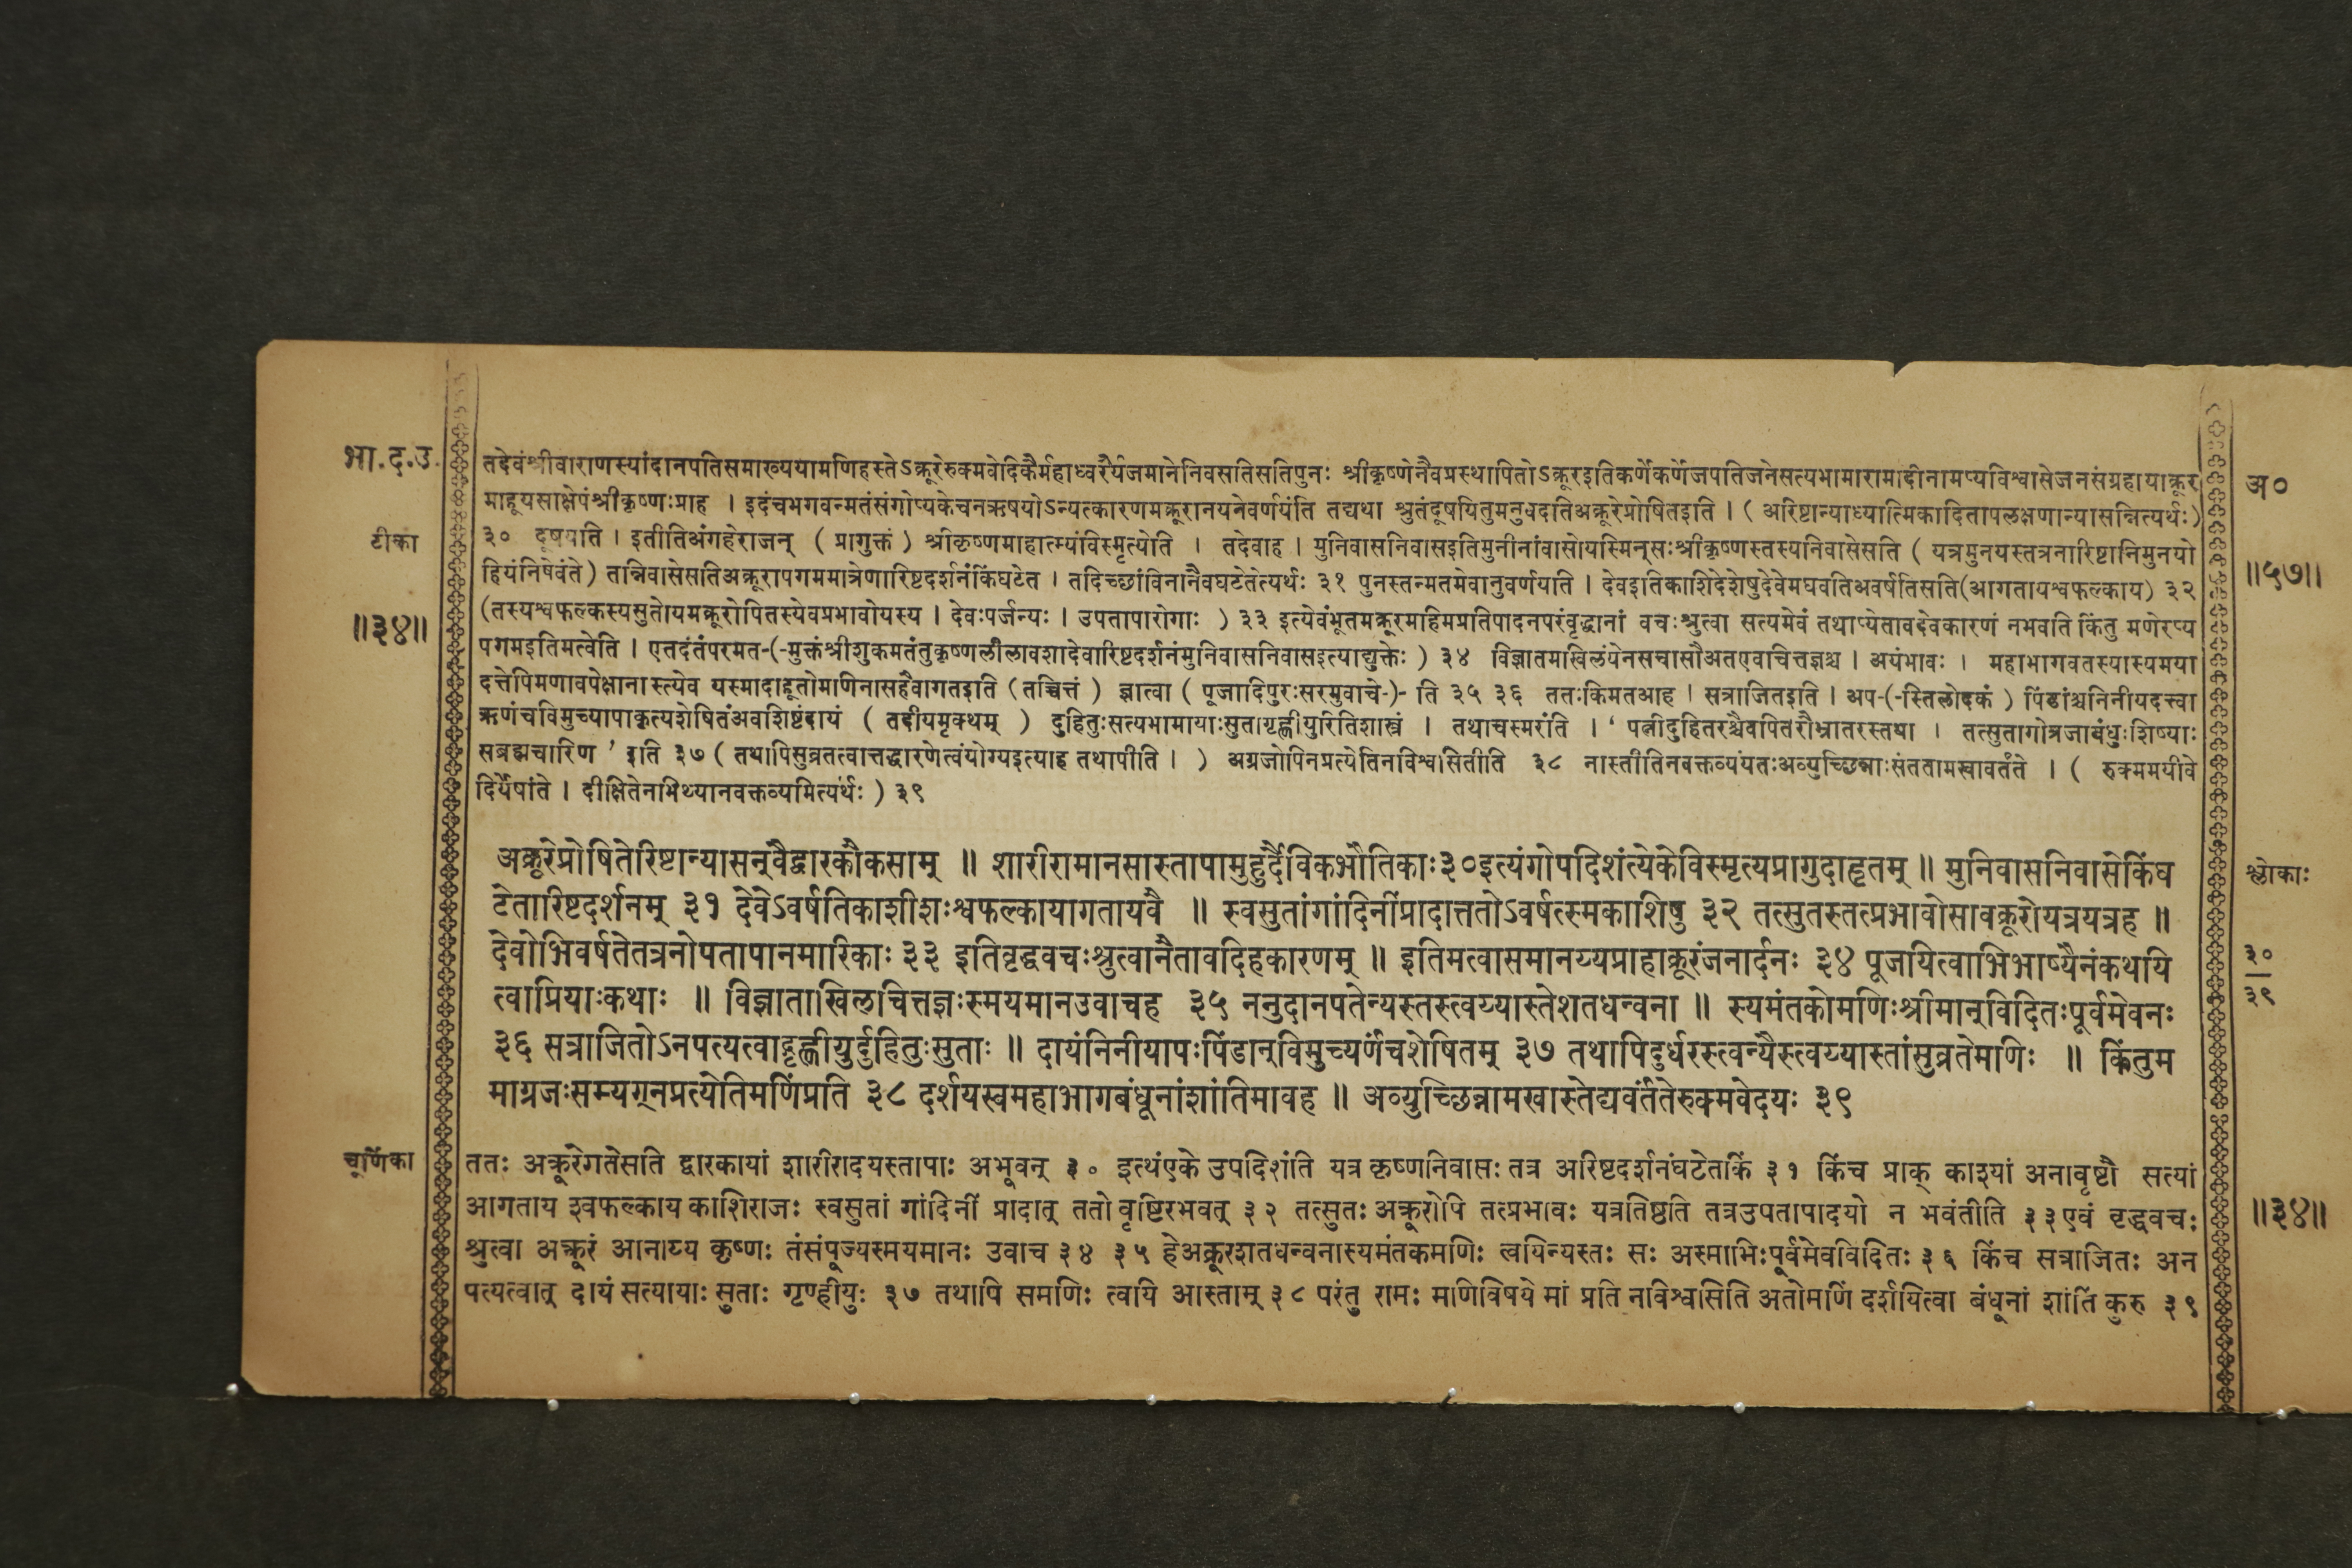 भा.द.उ.
टीका
॥३४॥
तदेवंश्रीवाराणस्यांदानपतिसमाख्ययामणिहस्तेऽक्रूरेरुक्मवेदिकैर्महाध्वरैर्यजमानेनिवसतिसतिपुनः श्रीकृष्णेनैवप्रस्थापितोऽक्रूरइतिकर्णेकर्णेजपतिजनेसत्यभामारामादीनामप्यविश्वासेजनसंग्रहायाक्रूर
माहूयसाक्षेपंश्रीकृष्णःप्राह । इदंचभगवन्मतंसंगोप्यकेचनऋषयोऽन्यत्कारणमक्रूरानयनेवर्णयंति तद्यथा श्रुतंदूषयितुमनुवदतिअक्रूरेप्रोषितइति । ( अरिष्टान्याध्यात्मिकादितापलक्षणान्यासन्नित्यर्थः)
३० दूषयति । इतीतिअंगहेराजन् ( प्रागुक्तं ) श्रीकृष्णमाहात्म्यंविस्मृत्येति । तदेवाह । मुनिवासनिवासइतिमुनीनांवासोयस्मिन्सःश्रीकृष्णस्तस्यनिवासेसति ( यत्रमुनयस्तत्रनारिष्टानिमुनयो
हियंनिषेवंते) तन्निवासेसतिअक्रूरापगममात्रेणारिष्टदर्शनंकिंघटेत । तदिच्छांविनानैवघटेतेत्यर्थः ३१ पुनस्तन्मतमेवानुवर्णयति । देवइतिकाशिदेशेषुदेवेमघवतिअवर्षतिसति(आगतायश्वफल्काय) ३२
(तस्यश्वफल्कस्यसुतोयमक्रूरोपितस्येवप्रभावोयस्य । देवःपर्जन्यः । उपतापारोगाः ) ३३ इत्येवंभूतमक्रूरमहिमप्रतिपादनपरंवृद्धानां वचःश्रुत्वा सत्यमेवं तथाप्येतावदेवकारणं नभवति किंतु मणेरप्य
पगमइतिमत्वेति । एतदंतंपरमत-(-मुक्तंश्रीशुकमतंतुकृष्णलीलावशादेवारिष्टदर्शनंमुनिवासनिवासइत्याद्युक्तेः ) ३४ विज्ञातमखिलंयेनसचासौअतएवाचित्तज्ञश्च । अयंभावः । महाभागवतस्यास्यमया
दत्तेपिमणावपेक्षानास्त्येव यस्मादाहूतोमणिनासहैवागतइति (तच्चित्तं ) ज्ञात्वा ( पूजादिपुरःसरमुवाचे-)- ति ३५ ३६ ततःकिमतआह । सत्राजितइति । अप-(-स्तिलोदकं ) पिंडांश्चनिनीयदत्त्वा
ऋणंचविमुच्यापाकृत्यशेषितंअवशिष्टंदायं ( तदीयमृक्थम् ) दुहितुःसत्यभामायाःसुतागृह्णीयुरितिशास्त्रं । तथाचस्मरंति । ' पत्नीदुहितरश्चैवपितरौभ्रातरस्तथा । तत्सुतागोत्रजाबंधुःशिष्याः
सब्रह्मचारिण ' इति ३७ ( तथापिसुव्रतत्वात्तद्धारणेत्वंयोग्यइत्याह तथापीति । ) अग्रजोपिनप्रत्येतिनविश्वसितीति ३८ नास्तीतिनवक्तव्यंयतःअव्युच्छिन्नाःसंततामखावर्तंते । ( रुक्ममयीवे
दिर्येषांते । दीक्षितेनमिथ्यानवक्तव्यमित्यर्थः ) ३९
अक्रूरेप्रोषितेरिष्टान्यासन्वैद्वारकौकसाम् ॥ शारीरामानसास्तापामुहुर्दैविकभौतिकाः३०इत्यंगोपदिशंत्येकेविस्मृत्यप्रागुदाहृतम् ॥ मुनिवासनिवासेकिंघ
टेतारिष्टदर्शनम् ३१ देवेऽवर्षतिकाशीशःश्वफल्कायागतायवै ॥ स्वसुतांगांदिनींप्रादात्ततोऽवर्षत्स्मकाशिषु ३२ तत्सुतस्तत्प्रभावोसावक्रूरोयत्रयत्रह ॥
देवोभिवर्षतेतत्रनोपतापानमारिकाः ३३ इतिवृद्धवचःश्रुत्वानैतावदिहकारणम् ॥ इतिमत्वासमानय्यप्राहाक्रूरंजनार्दनः ३४ पूजयित्वाभिभाष्यैनंकथयि
त्वाप्रियाःकथाः ॥ विज्ञाताखिलचित्तज्ञःस्मयमानउवाचह ३५ ननुदानपतेन्यस्तस्त्वय्यास्तेशतधन्वना ॥ स्यमंतकोमणिःश्रीमान्विदितःपूर्वमेवनः
३६ सत्राजितोऽनपत्यत्वाद्गृह्णीयुर्दुहितुःसुताः ॥ दायंनिनीयापःपिंडान्विमुच्यर्णंचशेषितम् ३७ तथापिदुर्धरस्त्वन्यैस्त्वय्यास्तांसुव्रतेमणिः ॥ किंतुम
माग्रजःसम्यग्नप्रत्येतिमणिंप्रति ३८ दर्शयस्वमहाभागबंधूनांशांतिमावह ॥ अव्युच्छिन्नामखास्तेद्यवर्तंतेरुक्मवेदयः ३९
चूर्णिका
ततः अक्रूरेगतेसति द्वारकायां शारीरादयस्तापाः अभूवन् ३० इत्थंएके उपदिशंति यत्र कृष्णनिवासः तत्र अरिष्टदर्शनंघटेतकिं ३१ किंच प्राक् काश्यां अनावृष्टौ सत्यां
आगताय श्वफल्काय काशिराजः स्वसुतां गांदिनीं प्रादात् ततो वृष्टिरभवत् ३२ तत्सुतः अक्रूरोपि तत्प्रभावः यत्रतिष्ठति तत्रउपतापादयो न भवंतीति ३३एवं वृद्धवचः
श्रुत्वा अक्रूरं आनाय्य कृष्णः तंसंपूज्यस्मयमानः उवाच ३४ ३५ हेअक्रूरशतधन्वनास्यमंतकमणिः त्वयिन्यस्तः सः अस्माभिःपूर्वमेवविदितः ३६ किंच सत्राजितः अन
पत्यत्वात् दायं सत्यायाः सुताः गृण्हीयुः ३७ तथापि समणिः त्वयि आस्ताम् ३८ परंतु रामः मणिविषये मां प्रति नविश्वसिति अतोमणिं दर्शयित्वा बंधूनां शांतिं कुरु ३९
अ०
॥५७॥
श्लोकाः
३०
३९
॥३४॥